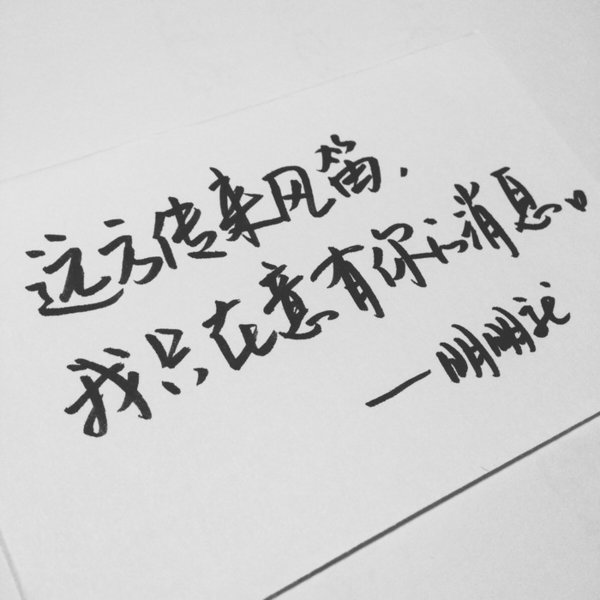 远方传来风笛,
我只在意有你的消息。
——明明说